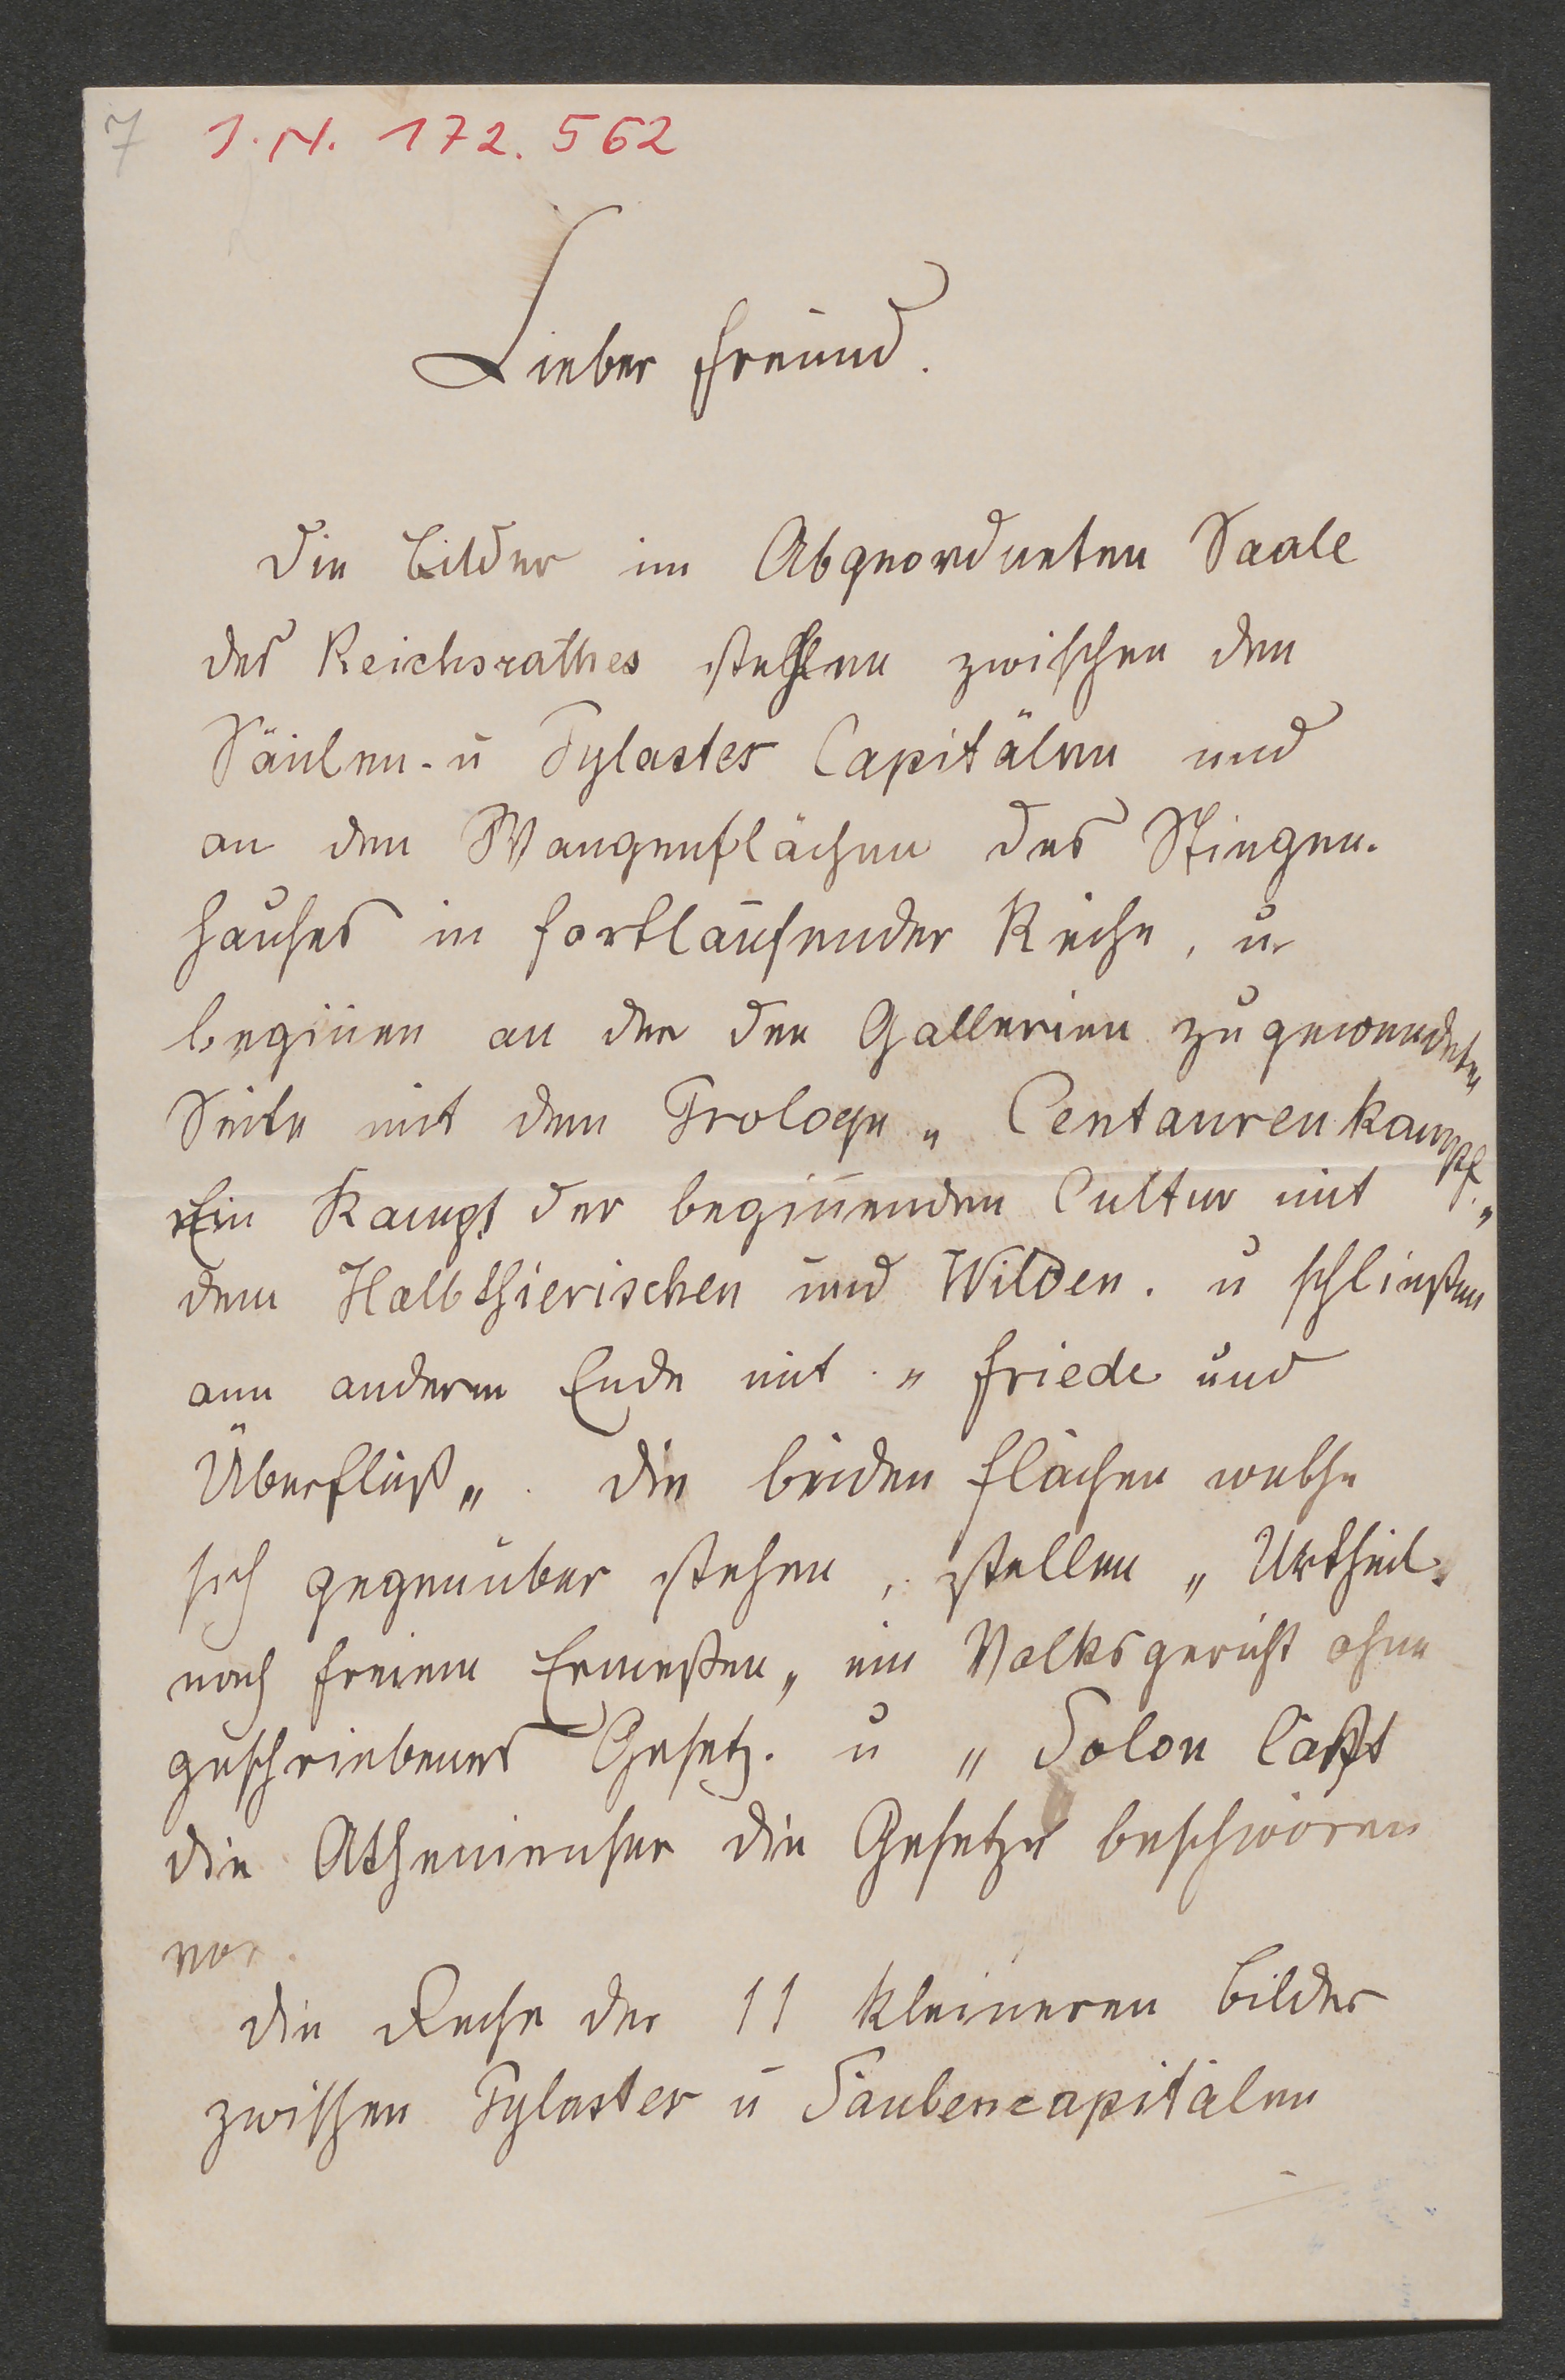 7 I. N. 172.562
Lieber Freund.
Die Bilder im Abgeordneten Saale
des Reichsrathes stehen zwischen den
Säulen- u Pylaster Capitälen und
an den Wangenflächen des Stiegen-
hauses in fortlaufender Reihe, u
begiñen an der den Gallerien zugewendeten
Seite mit dem Prologe „Centaurenkampf.„
Ein Kampf der begiñenden Cultur mit
dem Halbthierischen und Wilden. u schließen
am anderen Ende mit „Friede und
Überfluß„. Die beiden Flächen welche
sich gegenüber stehen, stellen „Urtheil
nach freiem Ermeßen„ ein Volksgericht ohne
geschriebenes Gesetz. u „Solon läßt
die Athenienser die Gesetze beschwören
vor.
Die Reihe der 11 kleineren Bilder
zwischen Pylaster u Säulencapitälen